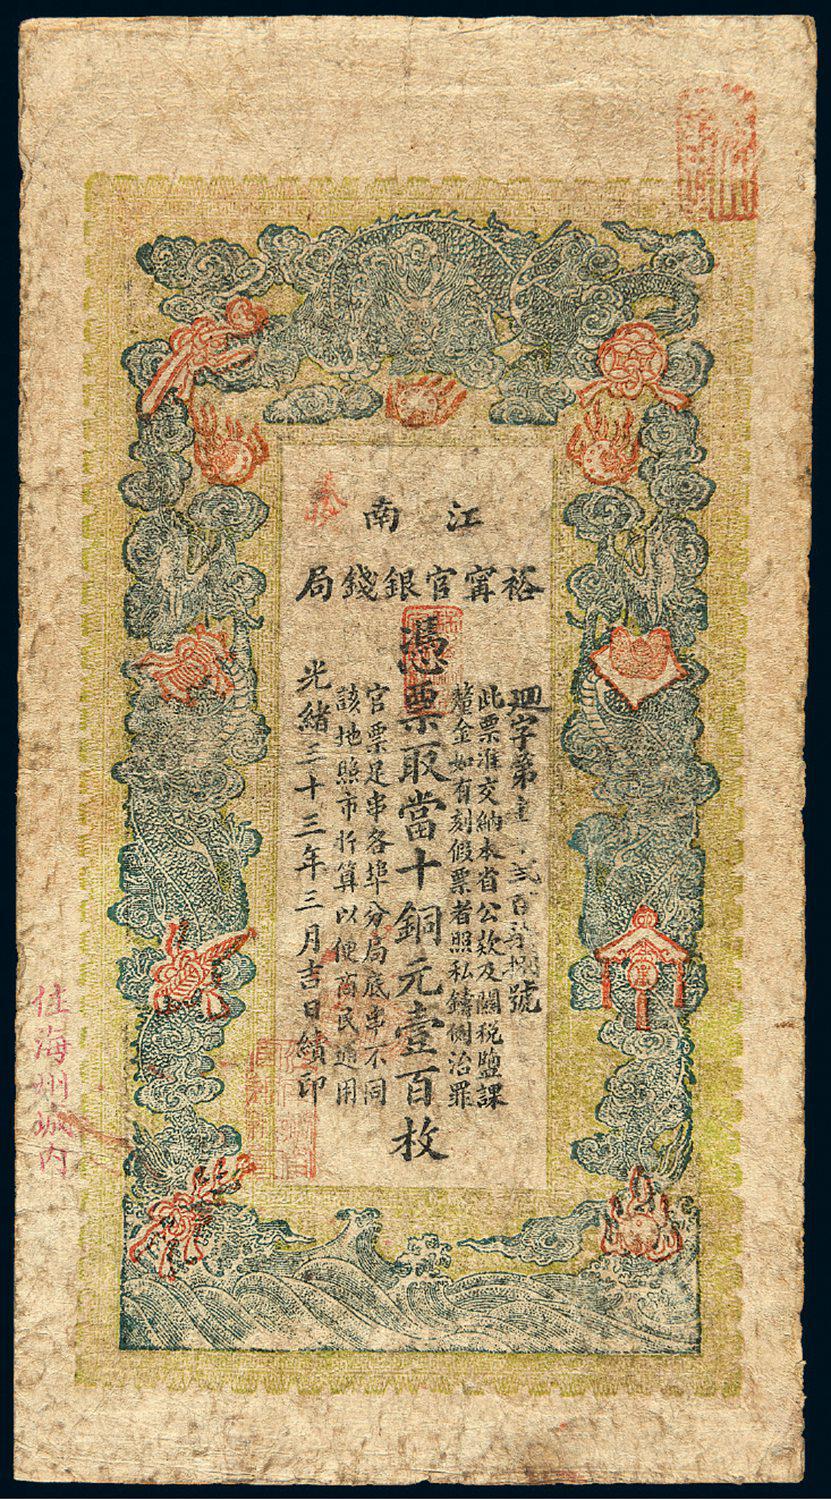 江南
裕甯官銀錢局
迴字第壹千弍百柒拾捌號
此票准交納本省公欵及關税鹽課
釐金如有刻假票者照私鑄例治罪
憑票取當十銅元壹百枚
官票足串各埠分局底串不同
該地照市折算以便商民通用
光緒三十三年三月吉日續印
住海州城内